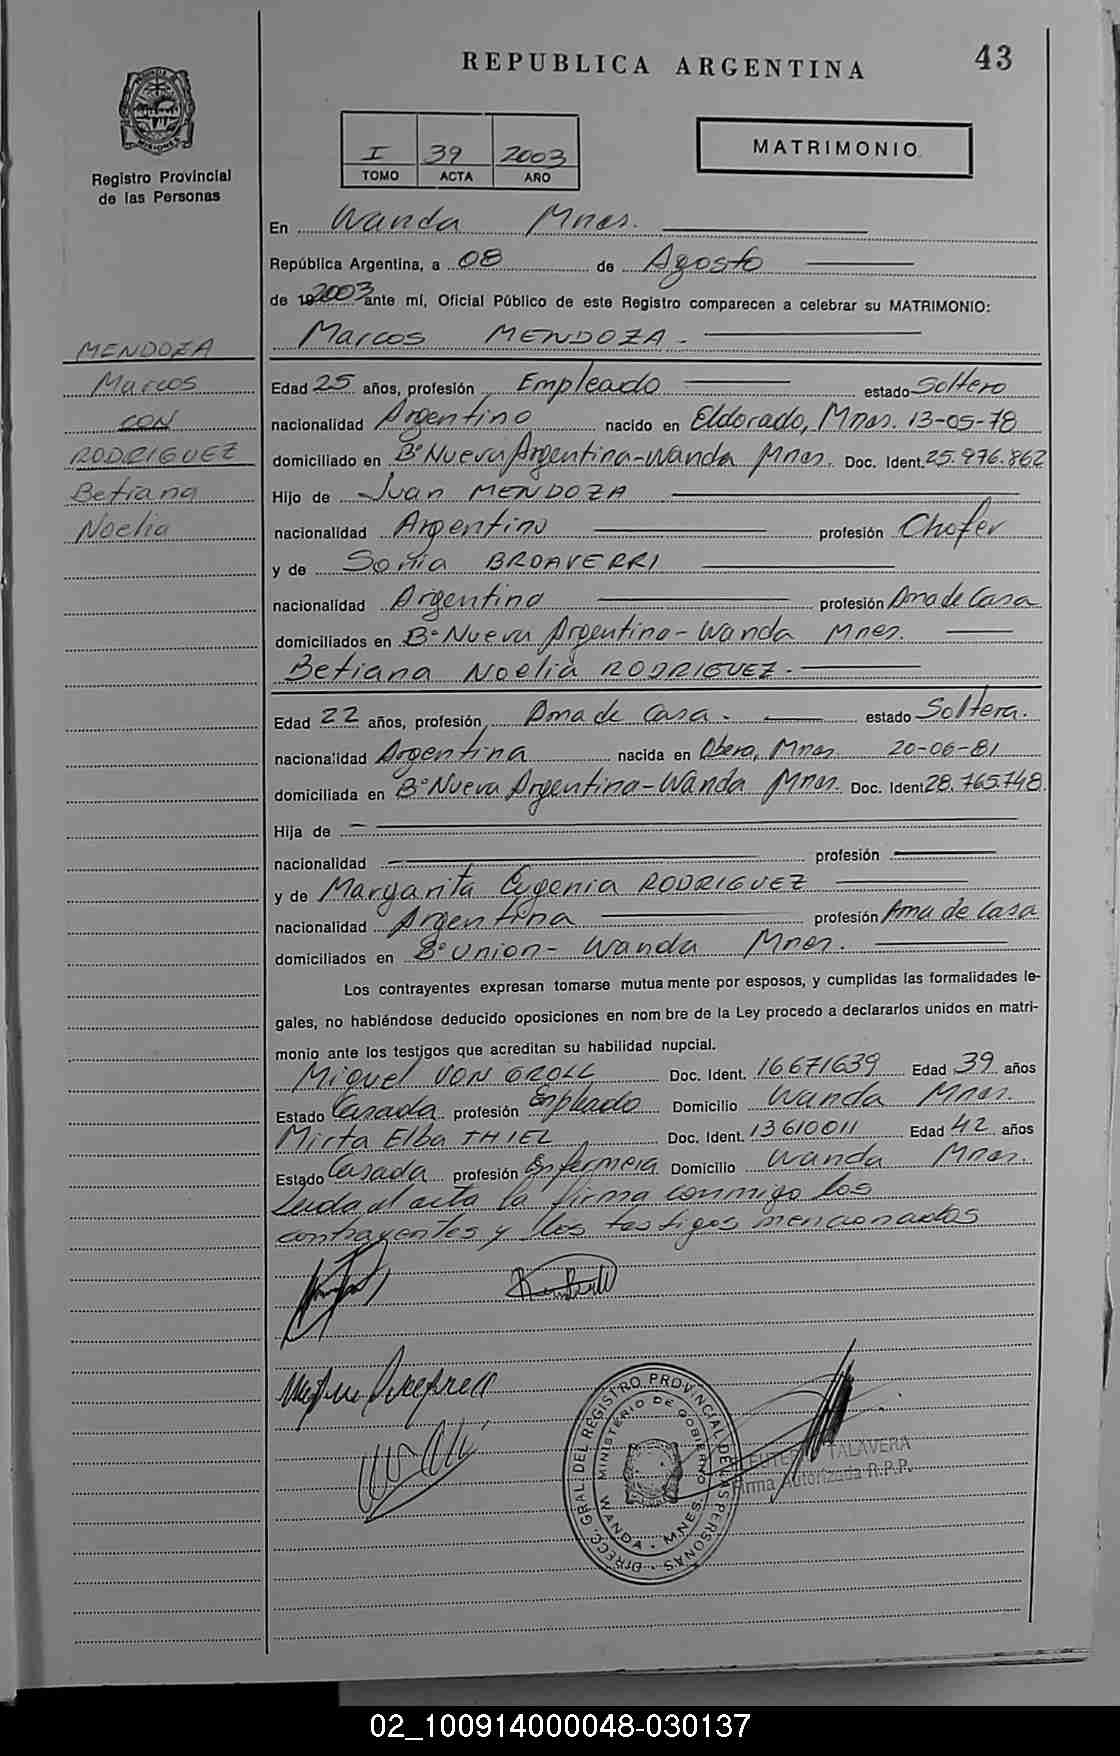 REPUBLICA ARGENTINA 43
MISIONES
Registro Provincial
de las Personas
I 39 2003
TOMO ACTA AÑO
MATRIMONIO
En Wanda Mnes.
República Argentina, a 08 de Agosto
de 2003 ante mí, Oficial Público de este Registro comparecen a celebrar su MATRIMONIO:
Marcos MENDOZA.-
MENDOZA
Marcos
CON
RODRIGUEZ
Betiana
Noelia
Edad 25 años, profesión Empleado estado Soltero
nacionalidad Argentino nacido en Eldorado, Mnes. 13-05-78
domiciliado en B° Nueva Argentina-Wanda Mnes. Doc. Ident. 25.976.862
Hijo de Juan MENDOZA
nacionalidad Argentino profesión Chofer
y de Sonia BROAVERRI
nacionalidad Argentina profesión Ama de Casa
domiciliados en B° Nueva Argentina-Wanda Mnes.
Betiana Noelia RODRIGUEZ.-
Edad 22 años, profesión Ama de Casa. estado Soltera.
nacionalidad Argentina nacida en Obera, Mnes. 20-06-81
domiciliada en B° Nueva Argentina-Wanda Mnes. Doc. Ident 28.765.748
Hija de
nacionalidad profesión
y de Margarita Eugenia RODRIGUEZ
nacionalidad Argentina profesión Ama de Casa
domiciliados en B° Union- Wanda Mnes.
Los contrayentes expresan tomarse mutua mente por esposos, y cumplidas las formalidades le-
gales, no habiéndose deducido oposiciones en nom bre de la Ley procedo a declararlos unidos en matri-
monio ante los testigos que acreditan su habilidad nupcial.
Miguel VON GROLL Doc. Ident. 16671639 Edad 39 años
Estado Casado profesión Empleado Domicilio Wanda Mnes.
Mirta Elba THIEL Doc. Ident. 13610011 Edad 42 años
Estado Casada profesión Enfermera Domicilio Wanda Mnes.
Leida el acta la firma conmigo los
contrayentes y los testigos mencionados
DIRECC. GRAL. DEL REGISTRO PROVINCIAL DE LAS PERSONAS
MINISTERIO DE GOBIERNO
WANDA - MNES.
TALAVERA
Firma Autorizada R.P.P.
02_100914000048-030137